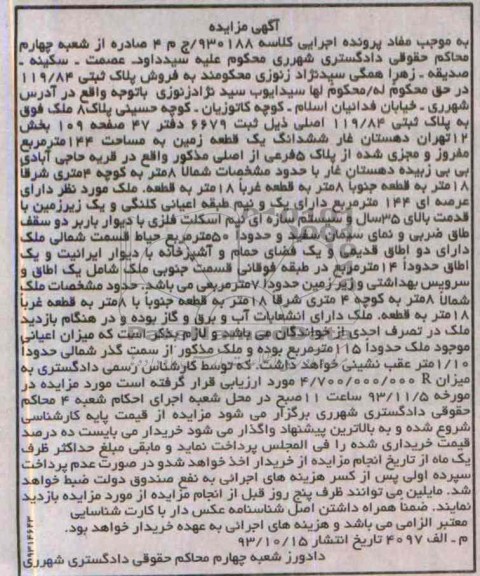 آگهی مزایده
به موجب مفاد پرونده اجرایی کلاسه ۹۳۰۱۸۸/ج م ۴ صادره از شعبه چهارم
محاکم حقوقی دادگستری شهرری محکوم علیه سیدداود، عصمت ـ سکینه ـ
صدیقه ـ زهرا همگی سیدنژاد زنوزی محکومند به فروش پلاک ثبتی ۱۱۹/۸۴
در حق محکوم له/محکوم لها سیدایوب سید نژادزنوزی باتوجه واقع در آدرس
شهرری ـ خیابان فدائیان اسلام ـ کوچه کاتوزیان ـ کوچه حسینی پلاک۸ ملک فوق
به پلاک ثبتی ۱۱۹/۸۴ اصلی ذیل ثبت ۶۶۷۹ دفتر ۴۷ صفحه ۱۰۹ بخش
۱۲تهران دهستان غار ششدانگ یک قطعه زمین به مساحت ۱۴۴مترمربع
مفروز و مجزی شده از پلاک ۵فرعی از اصلی مذکور واقع در قریه حاجی آبادی
بی بی زبیده دهستان غار با حدود مشخصات شمالا ۸متر به کوچه ۴متری شرقا
۱۸متر به قطعه جنوبا ۸متر به قطعه غربا ۱۸متر به قطعه. ملک مورد نظر دارای
عرصه ای ۱۴۴ مترمربع دارای یک و نیم طبقه اعیانی کلنگی و یک زیرزمین با
قدمت بالای ۳۵سال و سیستم سازه ای نیم اسکلت فلزی با دیوار باربر دو سقف
طاق ضربی و نمای سیمان سفید و حدوداً ۵۰مترمربع حیاط قسمت شمالی ملک
دارای دو اطاق قدیمی و یک فضای حمام و آشپزخانه با دیوار ایرانیت و یک
اطاق حدوداً ۱۴مترمربع در طبقه فوقانی قسمت جنوبی ملک شامل یک اطاق و
سرویس بهداشتی و زیر زمین حدوداً ۷مترمربعی می باشد. حدود مشخصات ملک
شمالا ۸متر به کوچه ۴ متری شرقا ۱۸متر به قطعه جنوباً با ۸متر به قطعه غرباً
۱۸متر به قطعه. ملک دارای انشعابات آب و برق و گاز بوده و در هنگام بازدید
ملک در تصرف احدی از خواندگان می باشد و لازم بذکر است که میزان اعیانی
موجود ملک حدوداً ۱۱۵مترمربع بوده و ملک مذکور از سمت گذر شمالی حدوداً
۱/۱۰متر عقب نشینی خواهد داشت. که توسط کارشناس رسمی دادگستری به
میزان R ۴/۷۰۰/۰۰۰/۰۰۰ مورد ارزیابی قرار گرفته است مورد مزایده در
مورخه ۹۳/۱۱/۵ ساعت ۱۱صبح در محل شعبه اجرای احکام شعبه ۴ محاکم
حقوقی دادگستری شهرری برگزار می شود مزایده از قیمت پایه کارشناسی
شروع شده و به بالاترین پیشنهاد واگذار می شود خریدار می بایست ده درصد
قیمت خریداری شده را فی المجلس پرداخت نماید و مابقی مبلغ حداکثر ظرف
یک ماه از تاریخ انجام مزایده از خریدار اخذ خواهد شدو در صورت عدم پرداخت
سپرده اولی پس از کسر هزینه های اجرائی به نفع صندوق دولت ضبط خواهد
شد. مایلین می توانند ظرف پنج روز قبل از انجام مزایده از مورد مزایده بازدید
نمایند. ضمناً همراه داشتن اصل شناسنامه عکس دار یا کارت شناسایی
معتبر الزامی می باشد و هزینه های اجرائی به عهده خریدار خواهد بود.
م ـ الف ۴۰۹۷ تاریخ انتشار ۹۳/۱۰/۱۵
دادورز شعبه چهارم محاکم حقوقی دادگستری شهرری